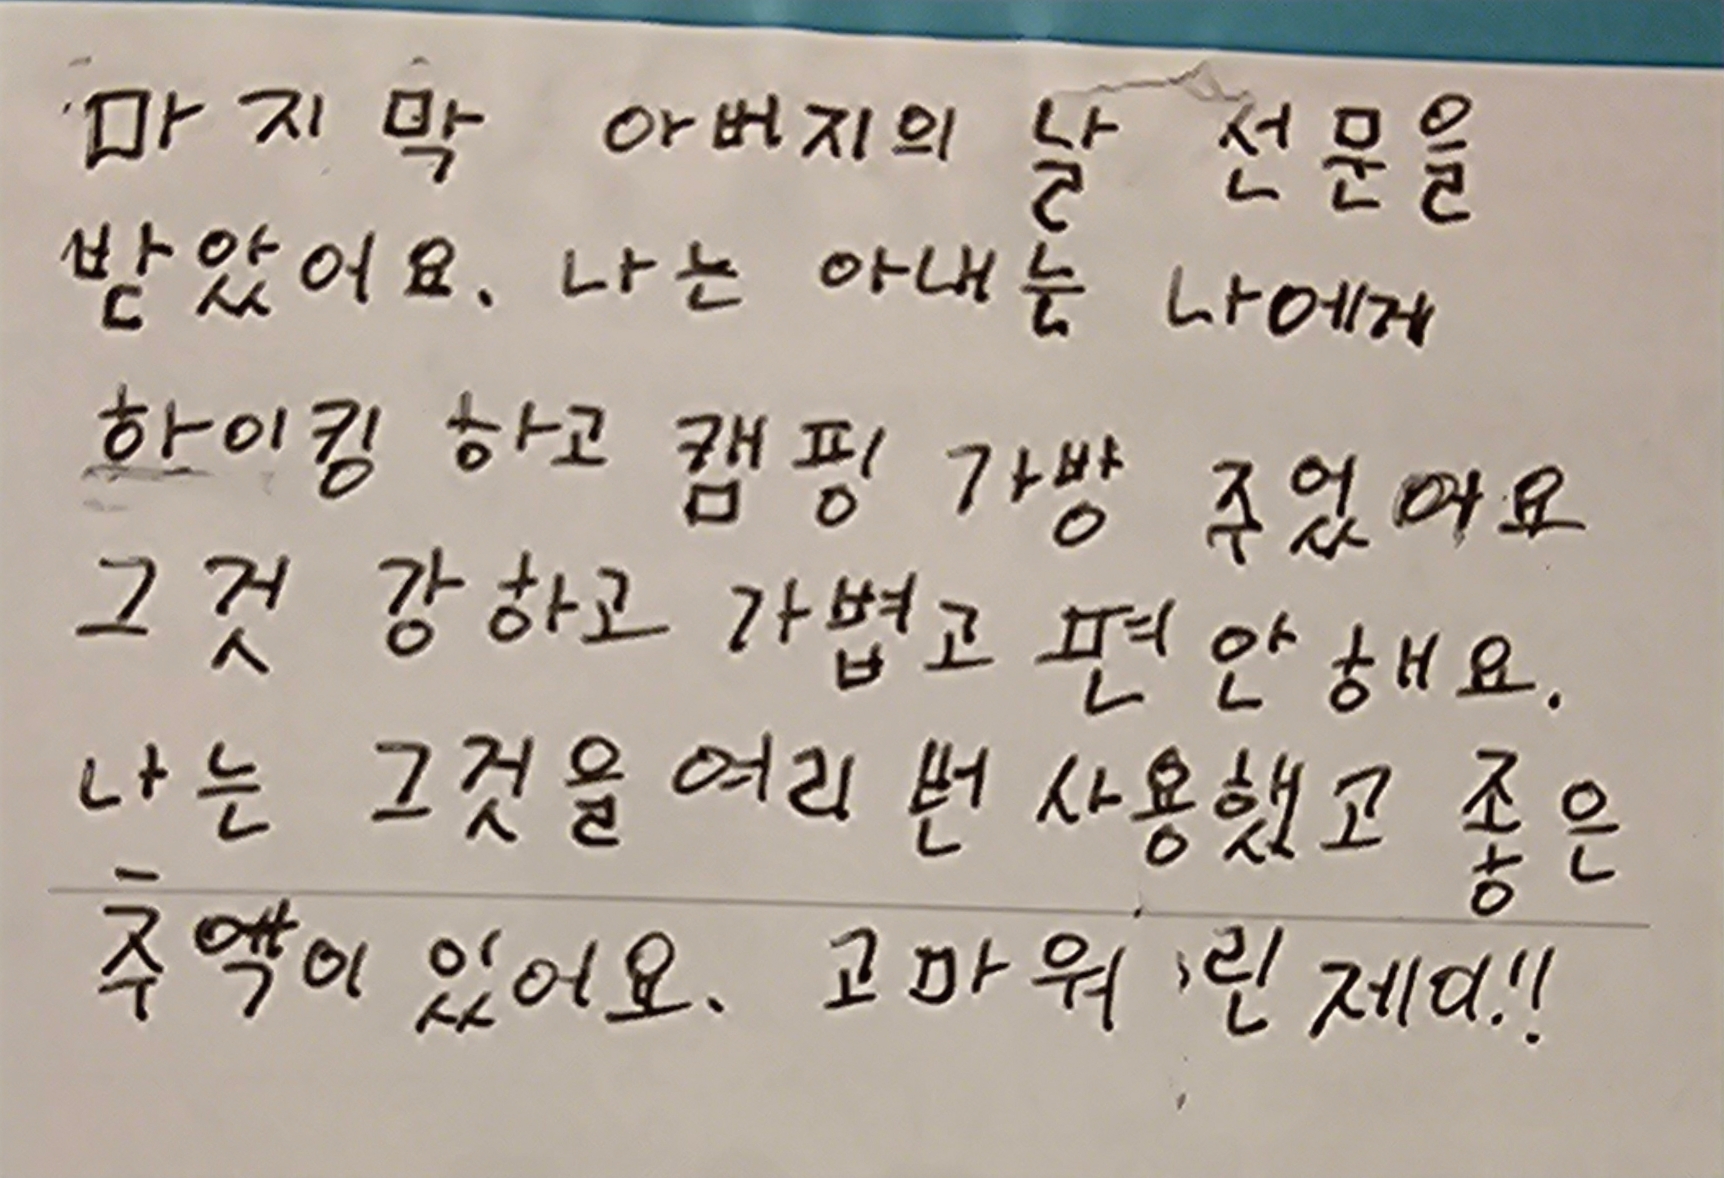 마지막 아버지의 날 선문을
받았어요. 나는 아내는 나에게
하이킹 하고 캠핑 가방 주었어요
그것 강하고 가볍고 편안해요.
나는 그것을 여리 번 사용했고 좋은
추액이 있어요. 고마워 린 제이!!